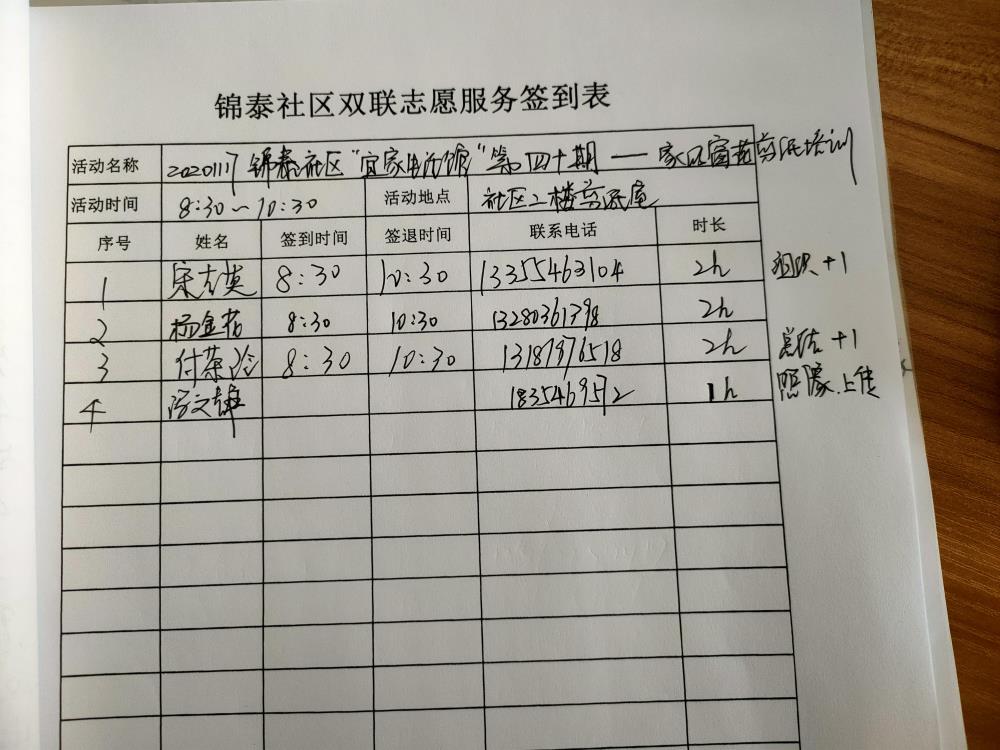 锦泰社区双联志愿服务签到表
活动名称 20201117 锦泰社区"宜家生活馆"第四十期——家风窗花剪纸培训
活动时间 8:30~10:30 活动地点 社区二楼
序号 姓名 签到时间 签退时间 联系电话 时长
1 宋志英 8:30 10:30 13355463104 2h 组织+1
2 杨金花 8:30 10:30 13280361398 2h
3 付荣玲 8:30 10:30 13187976518 2h 总结+1
4 冯文 1h 照像.上传